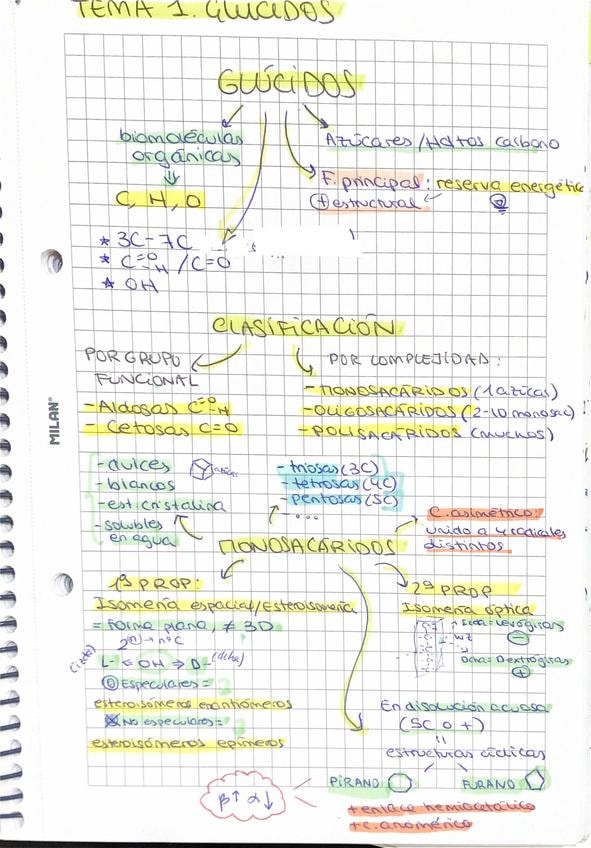 TEMA 1. GLÚCIDOS
GLÚCIDOS
biomoléculas
orgánicas
C, H, O
Azúcares/Hdtos carbono
F. principal: reserva energética
(+) estructural
* 3C-7C
* C=O-H / C=O
* OH
CLASIFICACIÓN
POR GRUPO
FUNCIONAL
- Aldosas C=O-H
- Cetosas C=O
POR COMPLEJIDAD:
- MONOSACÁRIDOS (1 azúcar)
- OLIGOSACÁRIDOS (2-10 monosac)
- POLISACÁRIDOS (muchos)
- dulces
- blancos
- est. cristalina
- solubles
en agua
- triosas (3C)
- tetrosas (4C)
- pentosas (5C)
- ...
C. asimétrico:
unido a 4 radicales
distintos
MONOSACÁRIDOS
1ª PROP:
Isomería espacial/Esteroisomería
= forma plana, ≠ 3D
2ⁿ → nºC
(izda) L- ⇐ OH ⇒ D- (dcha)
Especulares =
esteroisómeros enantiómeros
No especulares =
esteroisómeros epímeros
2ª PROP
Isomería óptica
Izda: Levógiras
(-)
Dcha: Dextrógiras
(+)
En disolución acuosa
(5C o +)
estructuras cíclicas
PIRANO
FURANO
β↑ α↓
+ enlace hemiacetálico
+ C. anomérico
MILAN